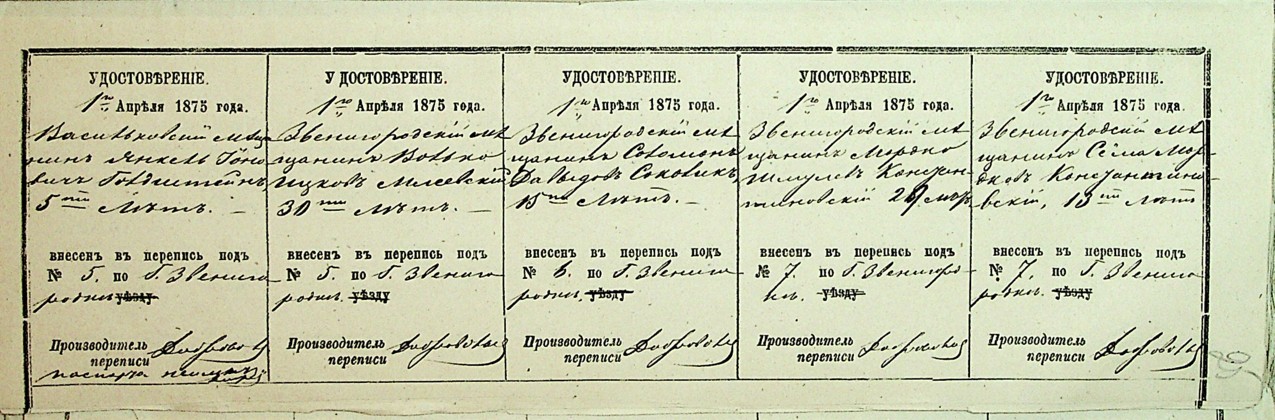 УДОСТОВѢРЕНІЕ.
1го Апрѣля 1875 года.
Васильковскій мѣща
нинъ Янкель
вичъ Гольдштейнъ,
5ти лѣтъ. —
внесенъ въ перепись подъ
№ 5. по Г. Звениго
родкѣ. уѣзду
Производитель
переписи
У ДОСТОВѢРЕНІЕ.
1го Апрѣля 1875 года.
Звенигородскій мѣ
щанинъ Волько
Ицковъ Млеевскій
30ти лѣтъ. —
внесенъ въ перепись подъ
№ 5. по Г. Звениго
родкѣ. уѣзду
Производитель
переписи
УДОСТОВѢРЕНІЕ.
1го Апрѣля 1875 года.
Звенигородскій мѣ
щанинъ Соломонъ
Давыдовъ Соколикъ,
15ти лѣтъ. —
внесенъ въ перепись подъ
№ 6. по Г. Звениго
родкѣ. уѣзду
Производитель
переписи
УДОСТОВѢРЕНІЕ.
1го Апрѣля 1875 года.
Звенигородскій мѣ
щанинъ Мордко
Шмулевъ Констан
тиновскій
внесенъ въ перепись подъ
№ 7. по Г. Звенигород
кѣ. уѣзду
Производитель
переписи
УДОСТОВѢРЕНІЕ.
1го Апрѣля 1875 года.
Звенигородскій мѣ
щанинъ Сёма Мор
дковъ Константино
вскій, 13ти лѣтъ
внесенъ въ перепись подъ
№ 7. по Г. Звениго
родкѣ. уѣзду
Производитель
переписи